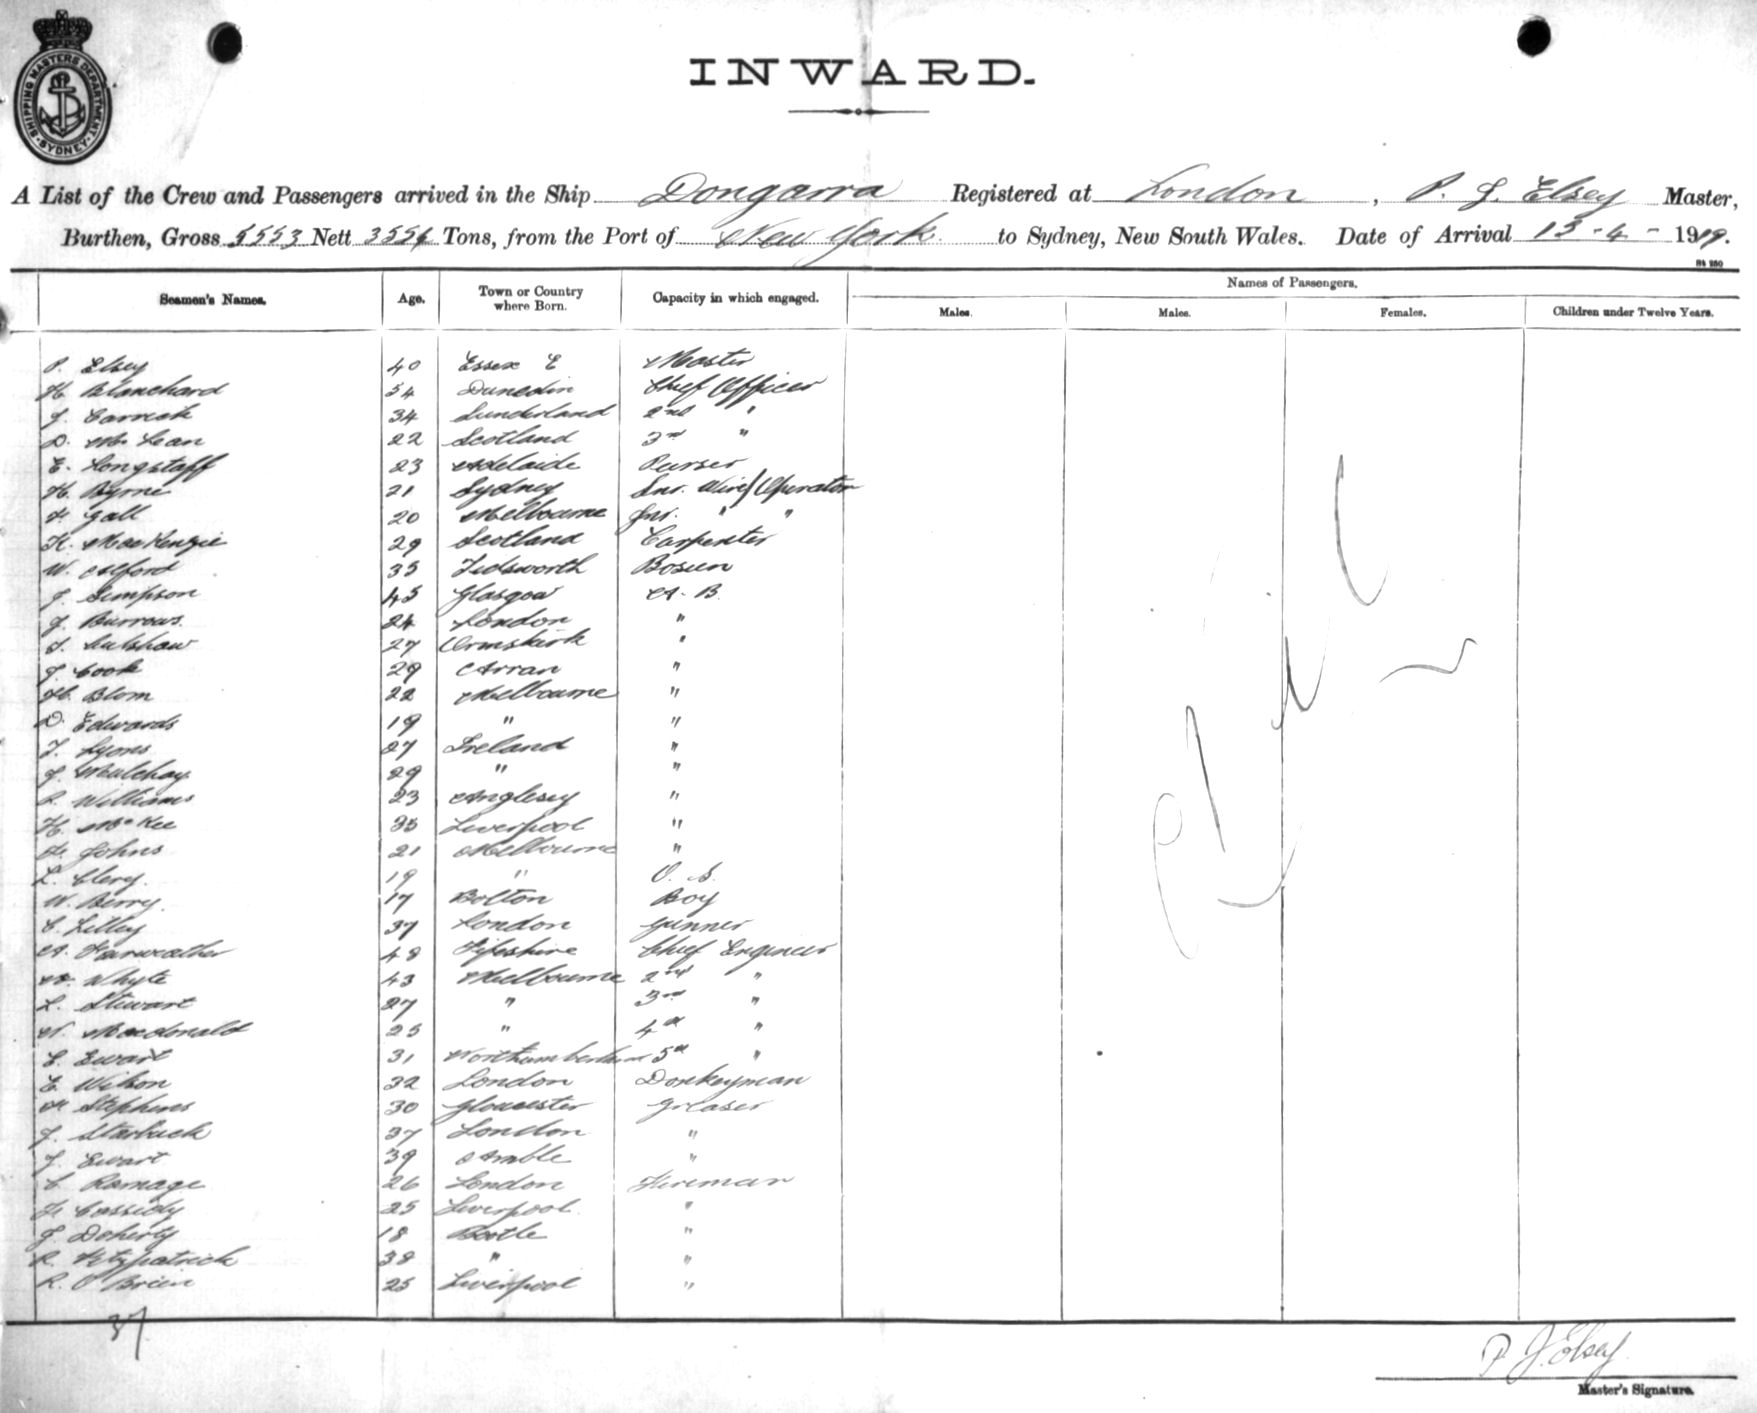 SHIPPING MASTERS DEPARTMENT
SYDNEY
INWARD.
A List of the Crew and Passengers arrived in the Ship Dongarra Registered at London, P. J. Elsey Master,
Burthen, Gross 5553 Nett 3556 Tons, from the Port of New York to Sydney, New South Wales. Date of Arrival 13-4-1919.
Seamen's Names. Age. Town or Country where Born. Capacity in which engaged. Names of Passengers.
Males. Males. Females. Children under Twelve Years.
P. Elsey 40 Essex E Master
H Blanchard 54 Dunedin Chief Officer
J. Carrick 34 Sunderland 2nd "
D. McLean 22 Scotland 3rd "
E. Longstaff 23 Adelaide Purser
H. Byrne 21 Sydney Snr. Wire/Operator
F. Gall 20 Melbourne Jnr. " "
K. MacKenzie 29 Scotland Carpenter
W. Alford 35 Bosun
J. Simpson 45 Glasgow A. B.
J. Burrows. 24 London "
T. Culshaw 27 Ormskirk "
J. Cook 29 Arran "
H. Blom 22 Melbourne "
D. Edwards 19 " "
T. Lyons 27 Ireland "
J. Mulchay 29 " "
R. Williams 23 Anglesey "
H. McKee 35 Liverpool "
F. Johns 21 Melbourne "
L. Clery. 19 " O. S.
W. Berry. 17 Bolton Boy
C. Lilley 37 London Gunner
A. Farweather 48 Fifeshire Chief Engineer
W. Whyte 43 Melbourne 2nd "
L. Stewart 27 " 3rd "
N. Macdonald 25 " 4th "
E. Ewart 31 Northumberland 5th "
E. Wilson 32 London Donkeyman
F. Stephens 30 Gloucester Greaser
J. Starbuck 37 London "
J. Ewart 39 Amble "
C. Ramage 26 London Fireman
F. Cassidy 25 Liverpool "
J. Doherty 18 Bootle "
R. Fitzpatrick 38 " "
R. O'Brien 25 Liverpool "
37
P J Elsey
Master's Signature.